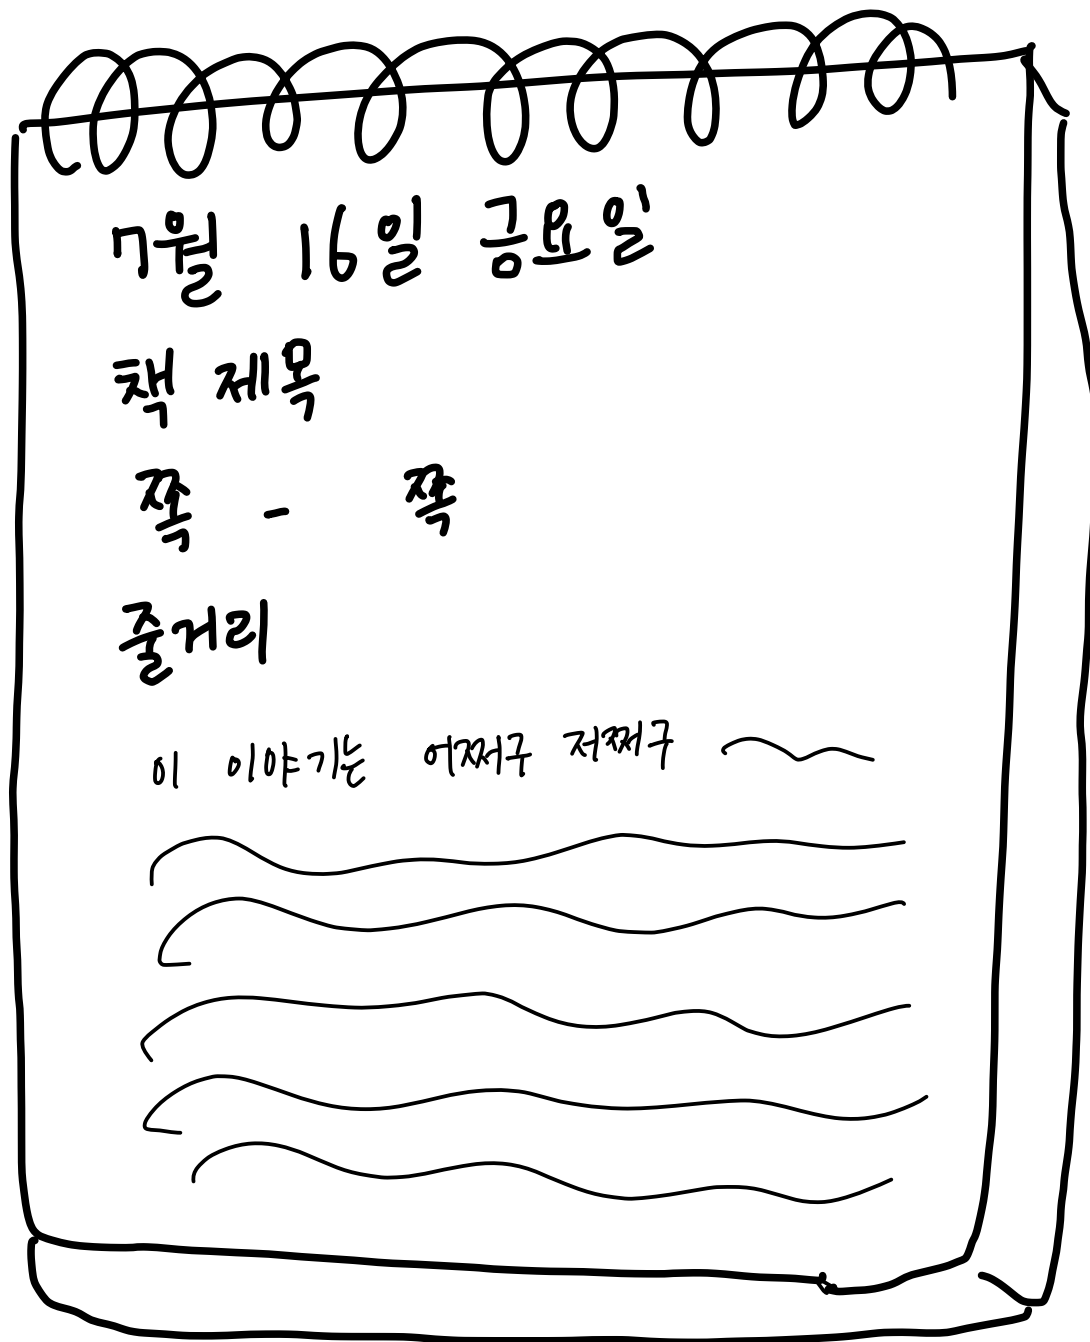 7월 16일 금요일
책 제목
쪽 - 쪽
줄거리
이 이야기는 어쩌구 저쩌구